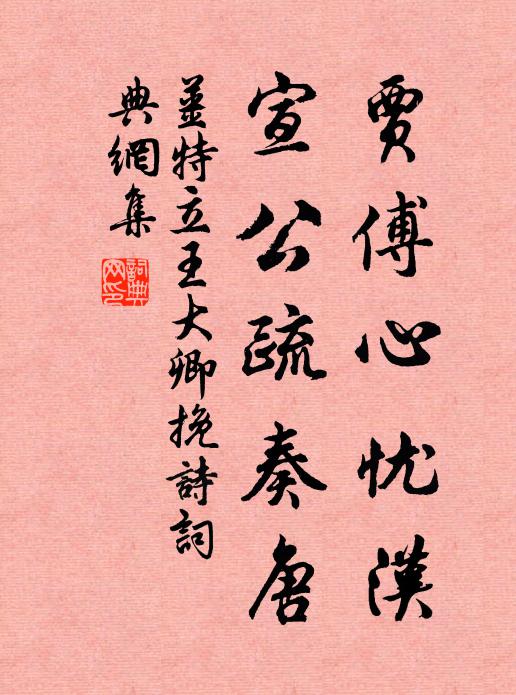 賈傅心忧漢
宣公疏奏唐
姜特立王大卿挽詩詞
典網集
詞典网印